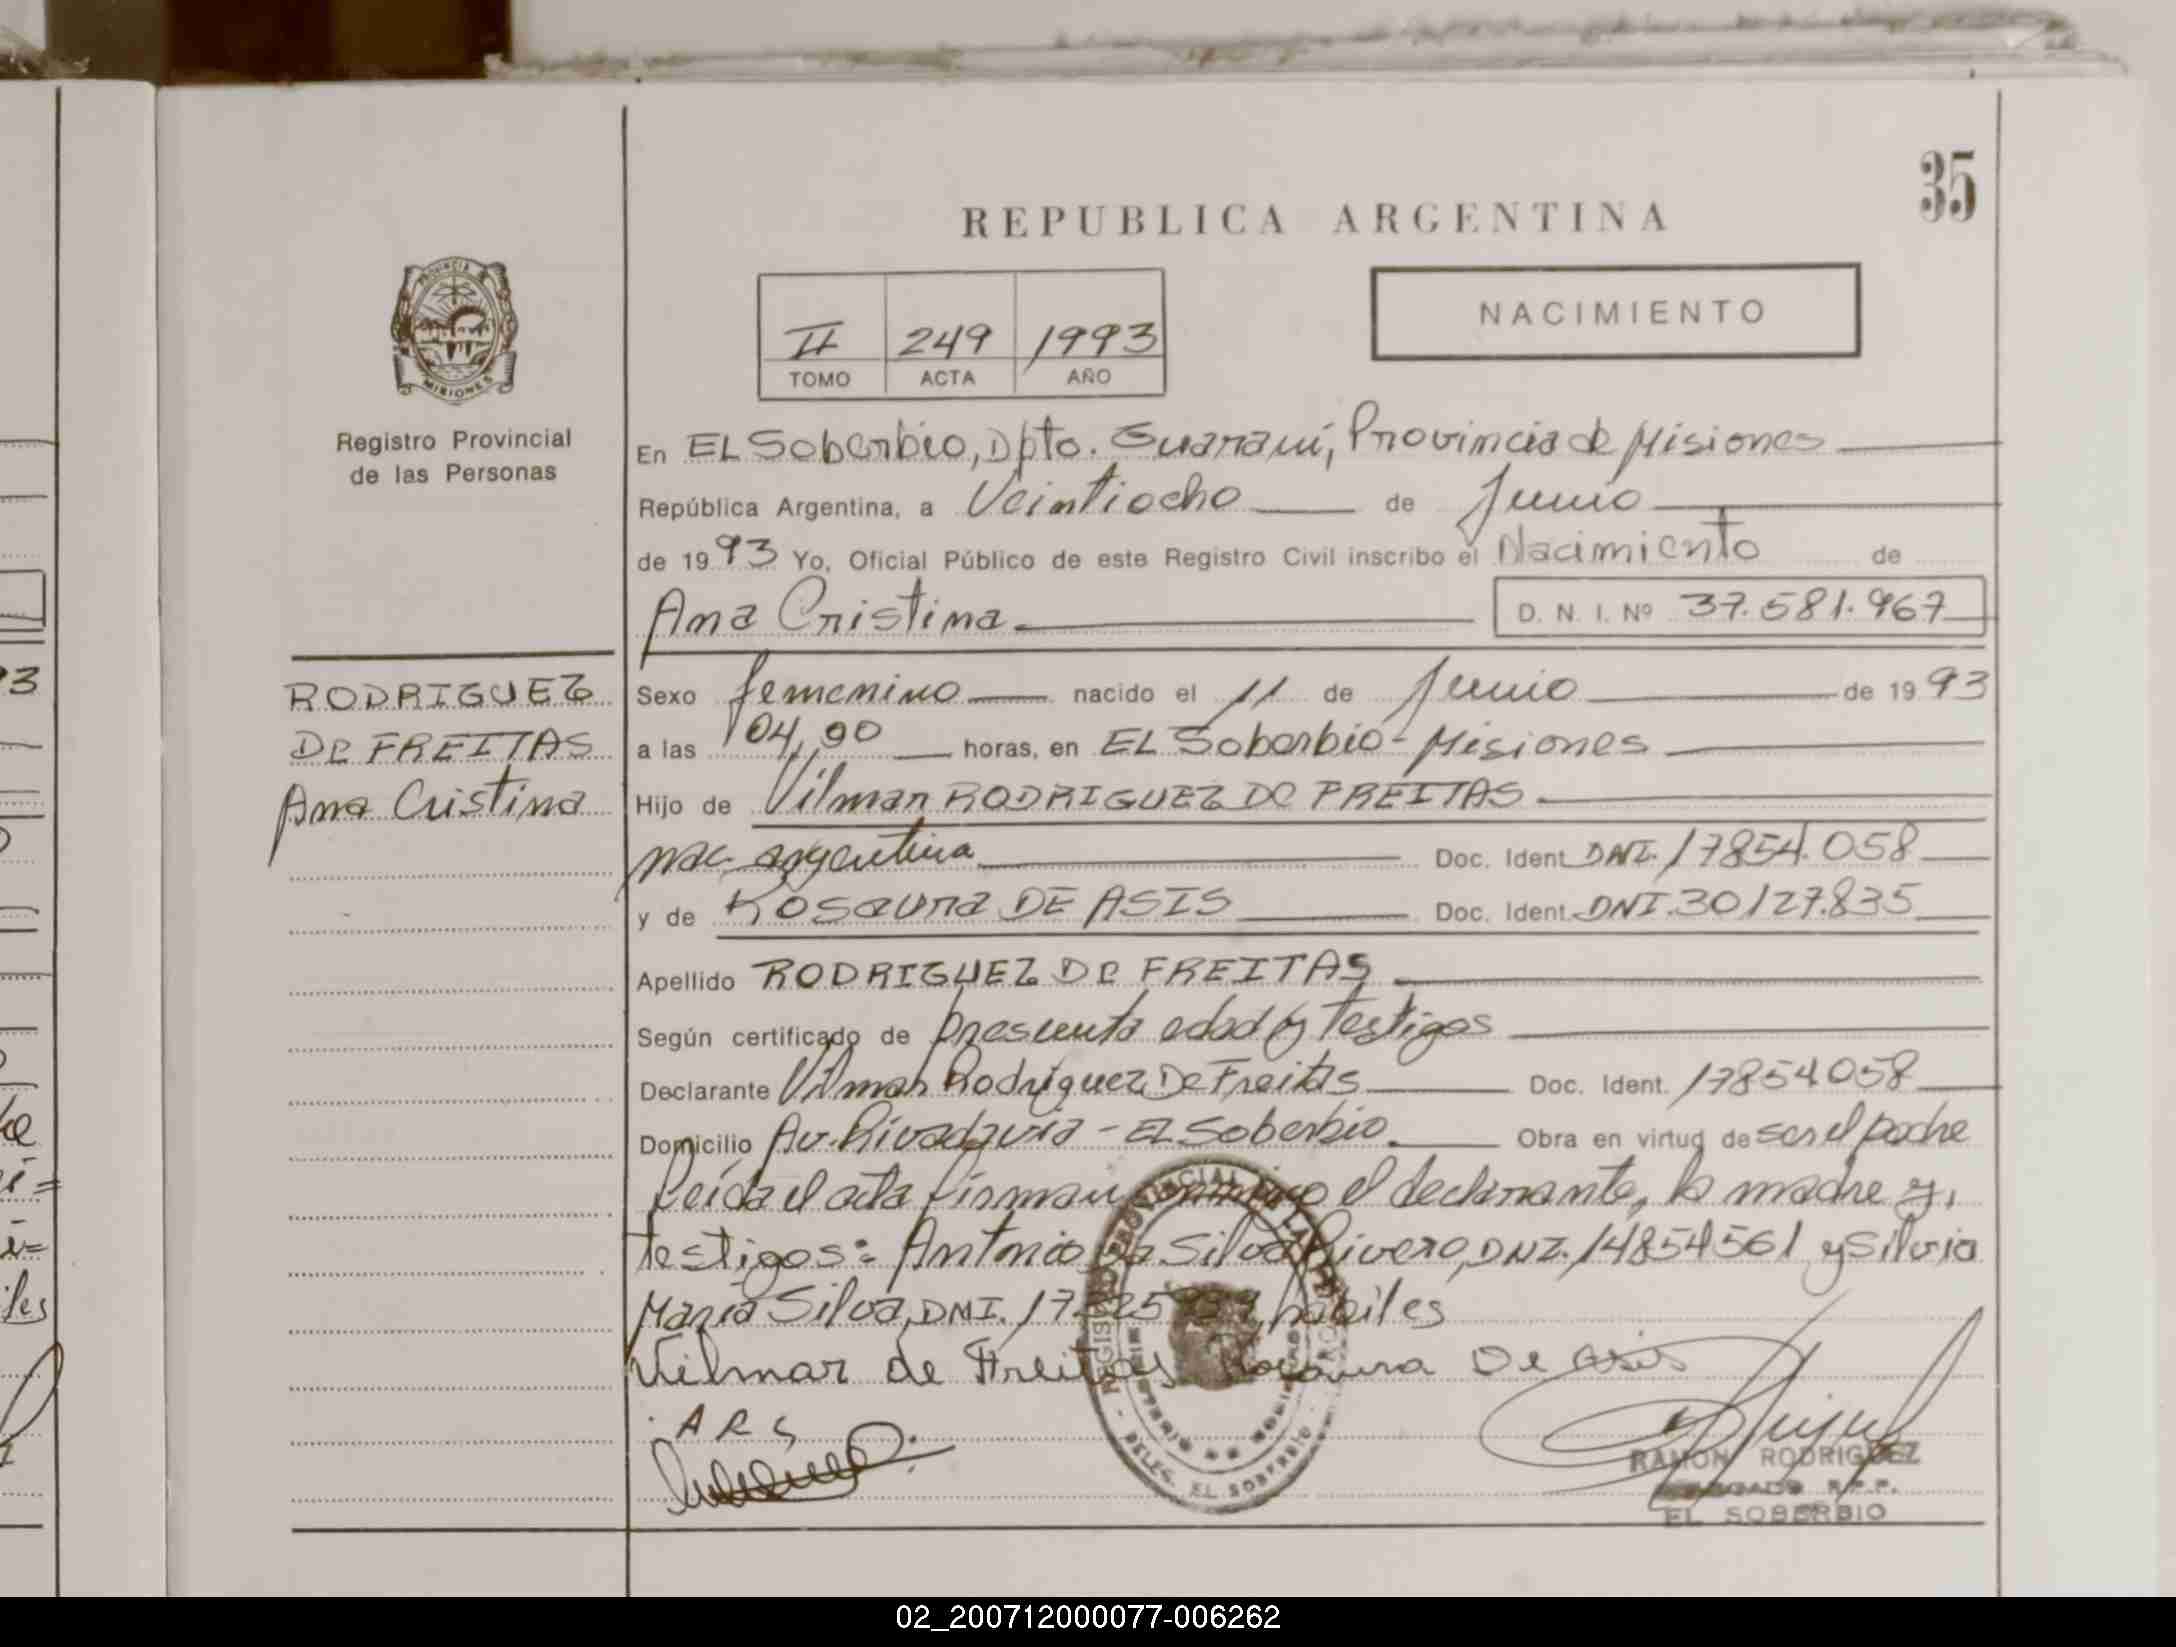 35
REPUBLICA ARGENTINA
NACIMIENTO
II 249 1993
TOMO ACTA AÑO
PROVINCIA DE
MISIONES
Registro Provincial
de las Personas
En EL Soberbio, Dpto. Guaraní, Provincia de Misiones
República Argentina, a Veintiocho de Junio
de 1993 Yo, Oficial Público de este Registro Civil inscribo el Nacimiento de
Ana Cristina D. N. I. Nº 37.581.967
RODRIGUEZ
DE FREITAS
Ana Cristina
Sexo femenino nacido el 11 de Junio de 1993
a las 04,00 horas, en EL Soberbio - Misiones
Hijo de Vilmar RODRIGUEZ DE FREITAS
nac. argentina Doc. Ident. DNI. 17854.058
y de Rosaura DE ASIS Doc. Ident. DNI. 30127.835
Apellido RODRIGUEZ DE FREITAS
Según certificado de presunta edad y Testigos
Declarante Vilmar Rodriguez De Freitas Doc. Ident. 17854058
Domicilio Av. Rivadavia - El Soberbio. Obra en virtud de ser el padre
Leída el acta firman conmigo el declarante, la madre y
testigos: Antonio Da Silva Rivero, DNI. 14854561 y Silvia
María Silva, DNI. habiles
Vilmar de Freitas Rosaura De Asis
A R S
DELEG. EL SOBERBIO
RAMON RODRIGUEZ
DELEGADO R.P.P.
EL SOBERBIO
02_200712000077-006262